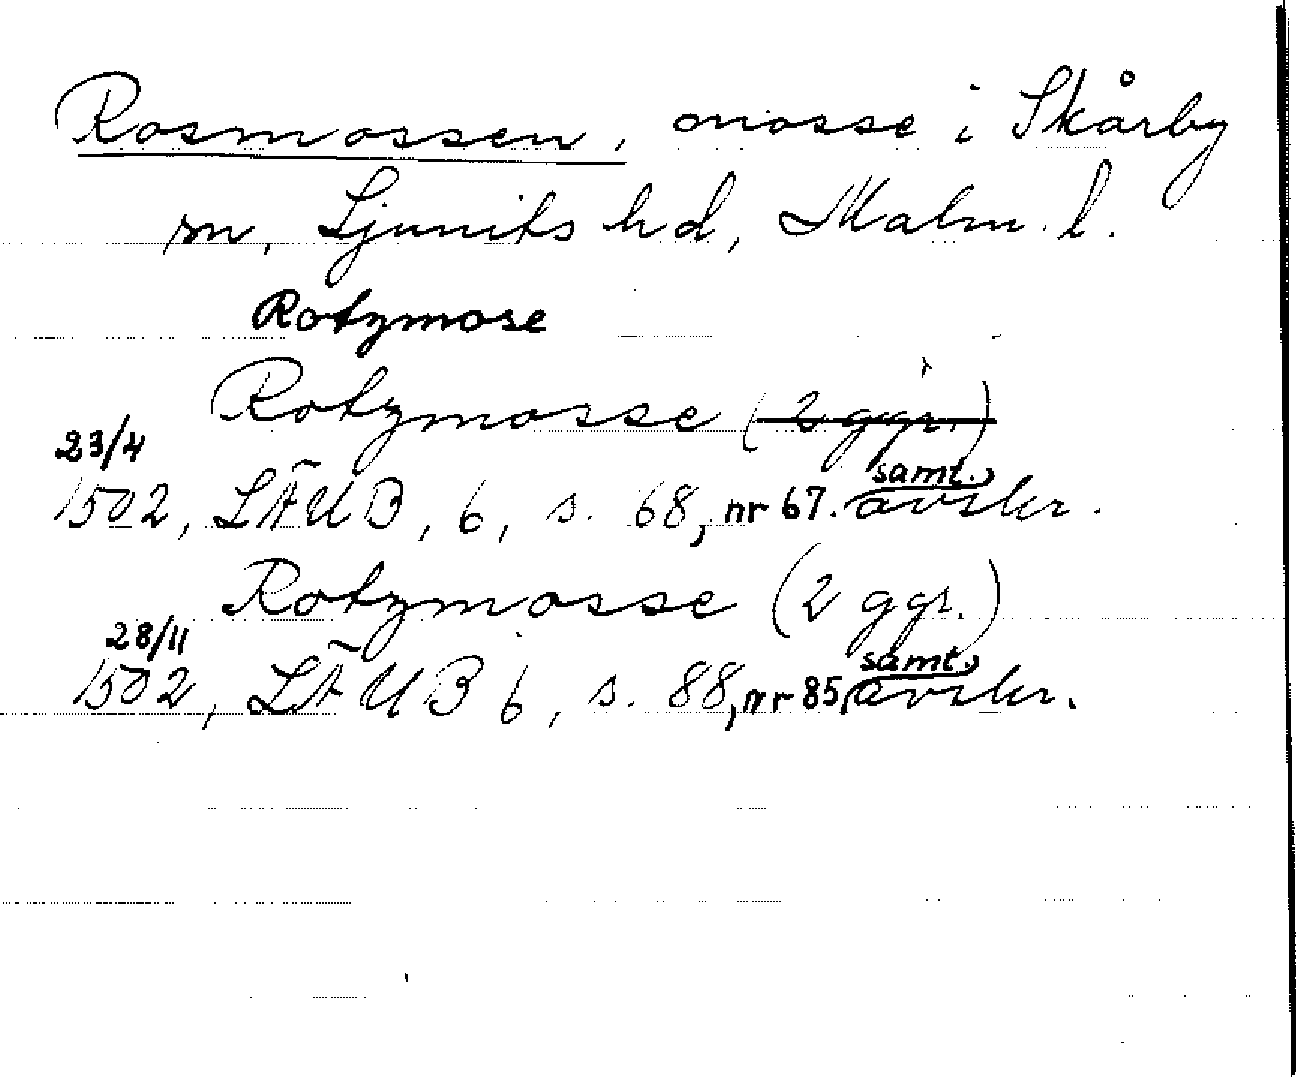 Rosmossen, mosse i Skårby
sn, Ljunits hd, Malm. l.
Rotzmose
Rotzmosse (2 ggr.)
23/4
1502, LÄUB, 6, s. 68, nr 67. samt. avskr.
Rotzmosse (2 ggr.)
28/11
1502, LÄUB 6, s. 88, nr 85, samt. avskr.